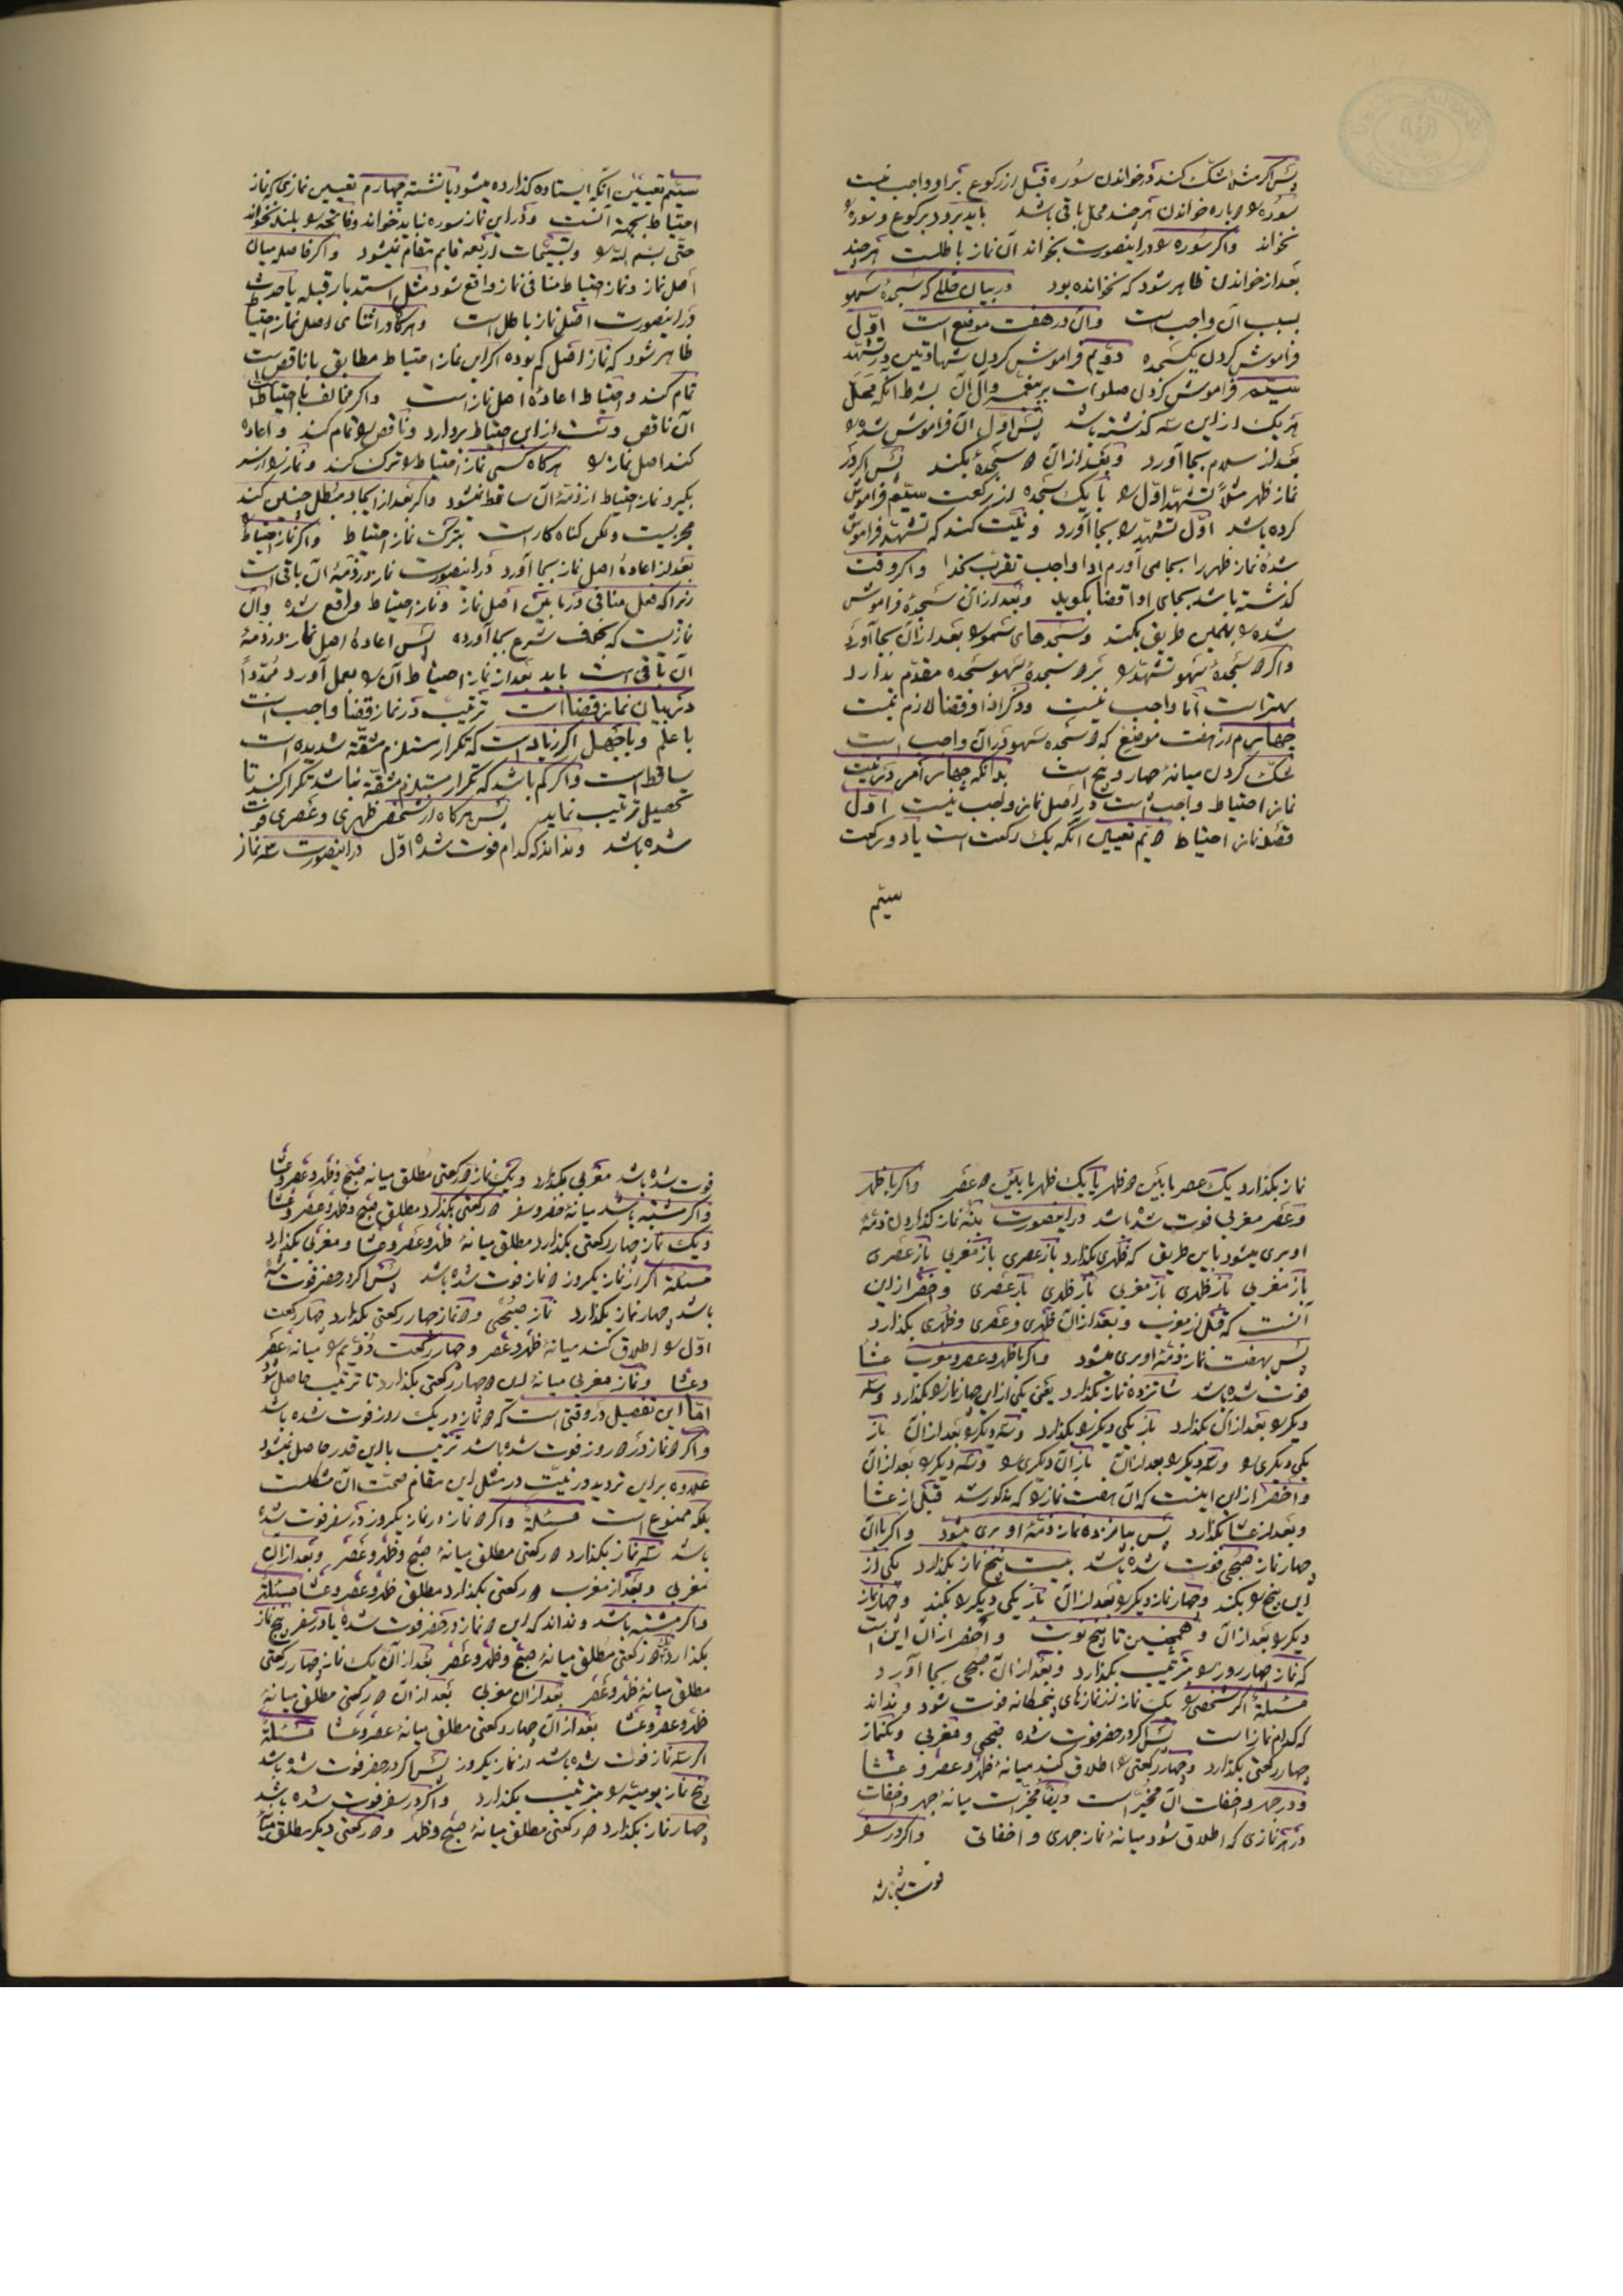 پس اگر مثلا شک کند در خواندن سوره قبل از رکوع بر او واجب نیست
سوره را دوباره خواندن هر چند محل باقی باشد باید برود برکوع و سوره را
نخواند واگر سوره را در اینصورت بخواند آن نماز باطلست هر چند
بعد از خواندن ظاهر شود که نخوانده بود در بیان خللی که سجده سهو
بسبب آن واجب است وآن در هفت موضع است اوّل
فراموش کردن یکسجده دویّم فراموش کردن شهادتین در تشهّد
سیّم فراموش کردن صلوات بر پیغمبر وآل آن بشرط آنکه محلّ
هر یک از این سه گذشته باشد پس اوّل آن فراموش شده را
بعد از سلام بجا آورد وبعد از آن دو سجده بکند پس اگر در
نماز ظهر مثلاً تشهّد اوّل را با یک سجده از رکعت سیّم فراموش
کرده باشد اوّل تشهّد را بجا آورد و نیّت کند که تشهّد فراموش
شدۀ نماز ظهر را بجا می آورم ادا واجب تقرّب بخدا واگر وقت
گذشته باشد بجای ادا قضا بگوید وبعد از آن سجدۀ فراموش
شده را بهمین طریق بکند وسجدهای سهو را بعد از آن بجا آورد
واگر دو سجدۀ سهو تشهّد را بر دو سجدۀ سهو سجده مقدّم بدارد
بهتر است امّا واجب نیست وذکر ادا وقضا لازم نیست
چهارم از هفت موضع که دو سجده سهو در آن واجب است
شک کردن میانۀ چهار و پنج است بدانکه چهار امر در نیت
نماز احتیاط واجب است در اصل نماز واجب نیست اوّل
قصد نماز احتیاط دویّم تعیین آنکه یک رکعت است یا دو رکعت
سیّم
سیّم تعیین آنکه ایستاده گذارده میشود یا نشسته چهارم تعیین نمازی که نماز
احتیاط بجهة آنست ودر این نماز سوره نباید خواند وفاتحه را بلند نخواند
حتّی بسم الله را وتسبیحات اربعه قایم مقام نمیشود واگر فاصله میان
اصل نماز ونماز احتیاط منافی نماز واقع شود مثل استدبار قبله یا حدث
در اینصورت اصل نماز باطل است وهرگاه در اثنای اصل نماز احتیاط
ظاهر شود که نماز اصل کم بوده اگر این نماز احتیاط مطابق با ناقص است
تمام کند واحتیاط اعادۀ اصل نماز است واگر مخالف با احتیاط
آن ناقص دست از این احتیاط بردارد وناقص را تمام کند و اعاده
کند اصل نماز را هرگاه کسی نماز احتیاط را ترک کند ونماز را از سر
بگیرد نماز احتیاط از ذمّۀ آن ساقط نمیشود واگر بعد از ایجاد مبطل چنین کند
مجزیست ولکن گناه کار است بترک نماز احتیاط واگر نماز احتیاط را
بعد از اعادۀ اصل نماز بجا آورد در اینصورت نماز در ذمّۀ آن باقی است
زیرا که فعل منافی در مابین اصل نماز ونماز احتیاط واقع شده وآن
نمازیست که بخلاف شرع بجا آورده پس اعادۀ اصل نماز در ذمۀ
آن باقی است باید بعد از نماز احتیاط آن را بعمل آورد مجدّداً
در بیان نماز قضا است ترتیب در نماز قضا واجب است
با علم وبا جهل اگر زیاد است که تکرار مستلزم مشقّة شدیده است
ساقط است واگر کم باشد که تکرار مستلزم مشقّة نباشد تکرار کند تا
تحصیل ترتیب نماید پس هرگاه از شخص ظهری وعصری فوت
شده باشد ونداند که کدام فوت شده اوّل در اینصورت سه نماز
نماز بگذارد یک عصر مابین دو ظهر یا یک ظهر مابین دو عصر واگر با ظهر
وعصر مغربی فوت شده باشد در اینصورت بنه نماز گذاردن ذمّۀ
او بری میشود باین طریق که ظهری بگذارد باز عصری باز مغربی باز عصری
باز مغربی باز ظهری باز مغربی باز ظهری باز عصری واخصر از این
آنست که قبل از مغرب وبعد از آن ظهری وعصری وظهری بگذارد
پس بهفت نماز ذمّۀ او بری میشود واگر با ظهر وعصر ومغرب عشا
فوت شده باشد شانزده نماز بگذارد یعنی یکی از این چهار نماز را بگذارد وسه
دیگر را بعد از آن بگذارد باز یکی دیگر را بگذارد وسه دیگر را بعد از آن باز
یکی دیگری را وسه دیگر را بعد از آن باز آن دیگری را وسه دیگر را بعد از آن
واخصر از این اینست که آن هفت نماز را که مذکور شد قبل از عشا
وبعد از عشا بگذارد پس بپانزده نماز ذمّۀ او بری میشود واگر باآن
چهار نماز صبحی فوت شده باشد بیست پنج نماز بگذارد یکی از
این پنج را بکند وچهار نماز دیگر را بعد از آن باز یکی دیگر را بکند وچهار نماز
دیگر را بعد از آن وهمچنین تا پنج نوبت واخصر از آن این است
که نماز چهار روز را بترتیب بگذارد وبعد از آن صبحی بجا آورد
مسئلة اگر شخصی را یک نماز از نمازهای پنجگانه فوت شود ونداند
که کدام نماز است پس اگر در حضر فوت شده صبحی ومغربی ویکنماز
چهار رکعتی بگذارد وچهار رکعتی را اطلاق کند میانۀ ظهر وعصر وعشا
ودر جهر واخفات آن مخیّر است وایضاً مخیّر است میانۀ جهر واخفات
در هر نمازی که اطلاق شود میانۀ نماز جهری واخفاتی واگر در سفر
فوت شده باشد
فوت شده باشد مغربی بگذارد ویک نماز دو رکعتی مطلق میانه صبح وظهر وعصر وعشا
واگر مشتبه باشد میانۀ حضر وسفر دو رکعتی بگذارد مطلق صبح وظهر وعصر وعشا
ویک نماز چهار رکعتی بگذارد مطلق میانۀ ظهر وعصر وعشا ومغربی بگذارد
مسئلة اگر از نماز یکروز دو نماز فوت شده باشد پس اگر در حضر فوت شده
باشد چهار نماز بگذارد نماز صبحی ودو نماز چهار رکعتی بگذارد چهار رکعت
اوّل را اطلاق کند میانۀ ظهر وعصر وچهار رکعت دویّم را میانۀ عصر
وعشا ونماز مغربی میانۀ این دو چهار رکعتی بگذارد تا ترتیب حاصل شود
امّا این تفصیل در وقتی است که دو نماز در یک روز فوت شده باشد
واگر دو نماز در دو روز فوت شده باشد ترتیب بااین قدر حاصل نمیشود
علاوه بر این تردید در نیّت در مثل این مقام صحّت آن مشکلست
بلکه ممنوع است مسئلة واگر دو نماز از نماز یکروز در سفر فوت شده
باشد سه نماز بگذارد دو رکعتی مطلق میانۀ صبح وظهر وعصر وبعد از آن
مغربی وبعد از مغرب دو رکعتی بگذارد مطلق ظهر وعصر وعشا مسئلة
واگر مشتبه باشد ونداند که این دو نماز در حضر فوت شده یا در سفر پنج نماز
بگذارد دو رکعتی مطلق میانۀ صبح وظهر وعصر بعد از آن یک نماز چهار رکعتی
مطلق میانۀ ظهر وعصر بعد از آن مغربی بعد از آن دو رکعتی مطلق میانۀ
ظهر وعصر وعشا بعد از آن چهار رکعتی مطلق میانۀ عصر وعشا مسئلة
اگر سه نماز فوت شده باشد از نماز یکروز پس اگر در حضر فوت شده باشد
پنج نماز یومیّه را بترتیب بگذارد واگر در سفر فوت شده باشد
چهار نماز بگذارد دو رکعتی مطلق میانۀ صبح وظهر ودو رکعتی دیگر مطلق میانۀ